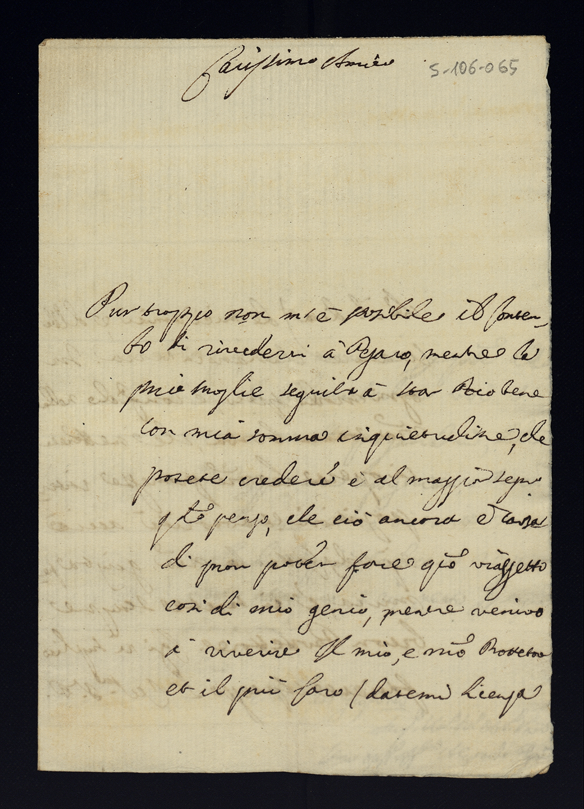 Carissimo Amico
S-106-065
Pur troppo non mi è possibile il conten-
to di rivedervi à Pesaro, mentre la
mia moglie seguita à star poco bene
con mia somma inquietudine, che
potete credere è al maggior segno
che ciò ancora è causa
di non poter fare qto viaggetto
così di mio genio, mentre venivo
à riverire il mio, e nro
et il più caro (datemi licenza